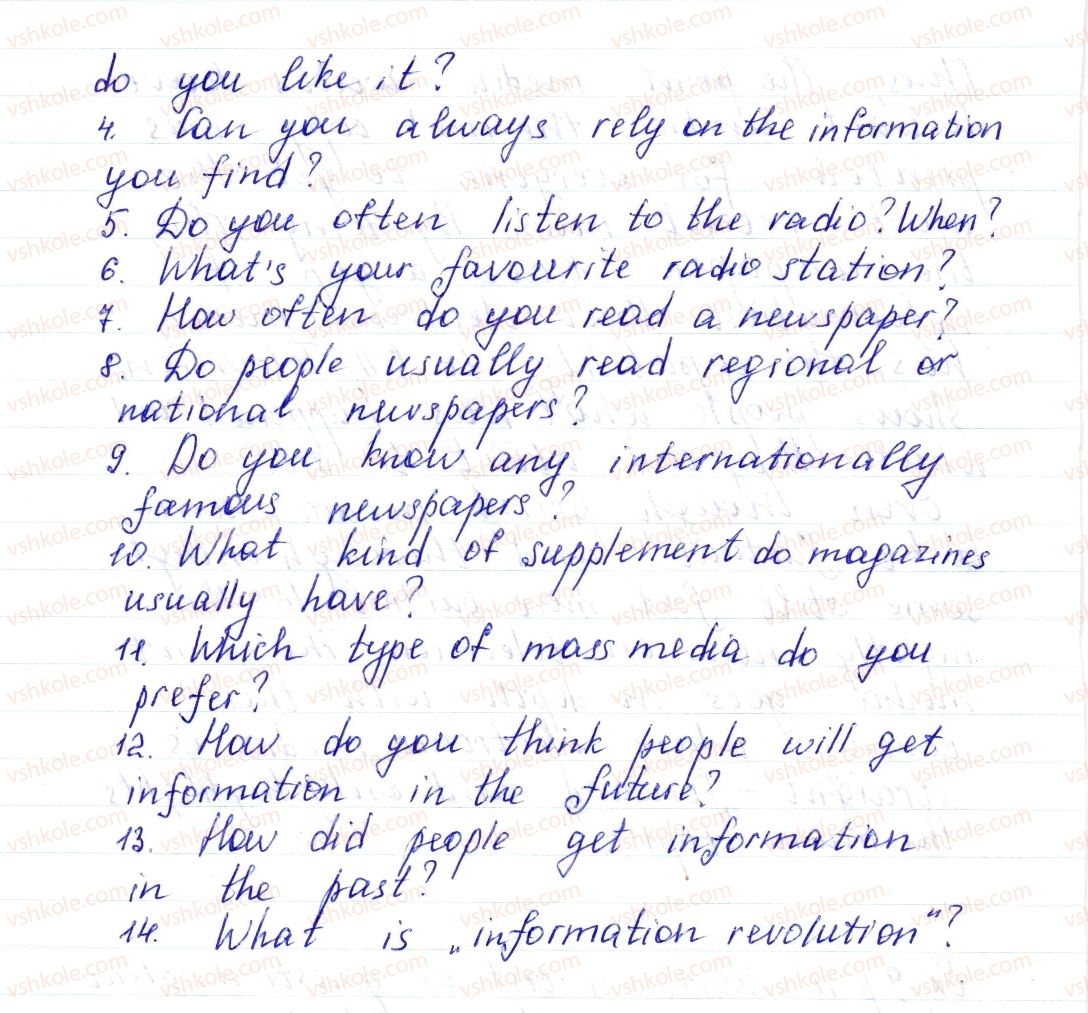 do you like it?
4. Can you always rely on the information
you find?
5. Do you often listen to the radio? When?
6. What's your favourite radio station?
7. How often do you read a newspaper?
8. Do people usually read regional or
national newspapers?
9. Do you know any internationally
famous newspapers?
10. What kind of supplement do magazines
usually have?
11. Which type of mass media do you
prefer?
12. How do you think people will get
information in the future?
13. How did people get information
in the past?
14. What is „information revolution"?
vshkole.com